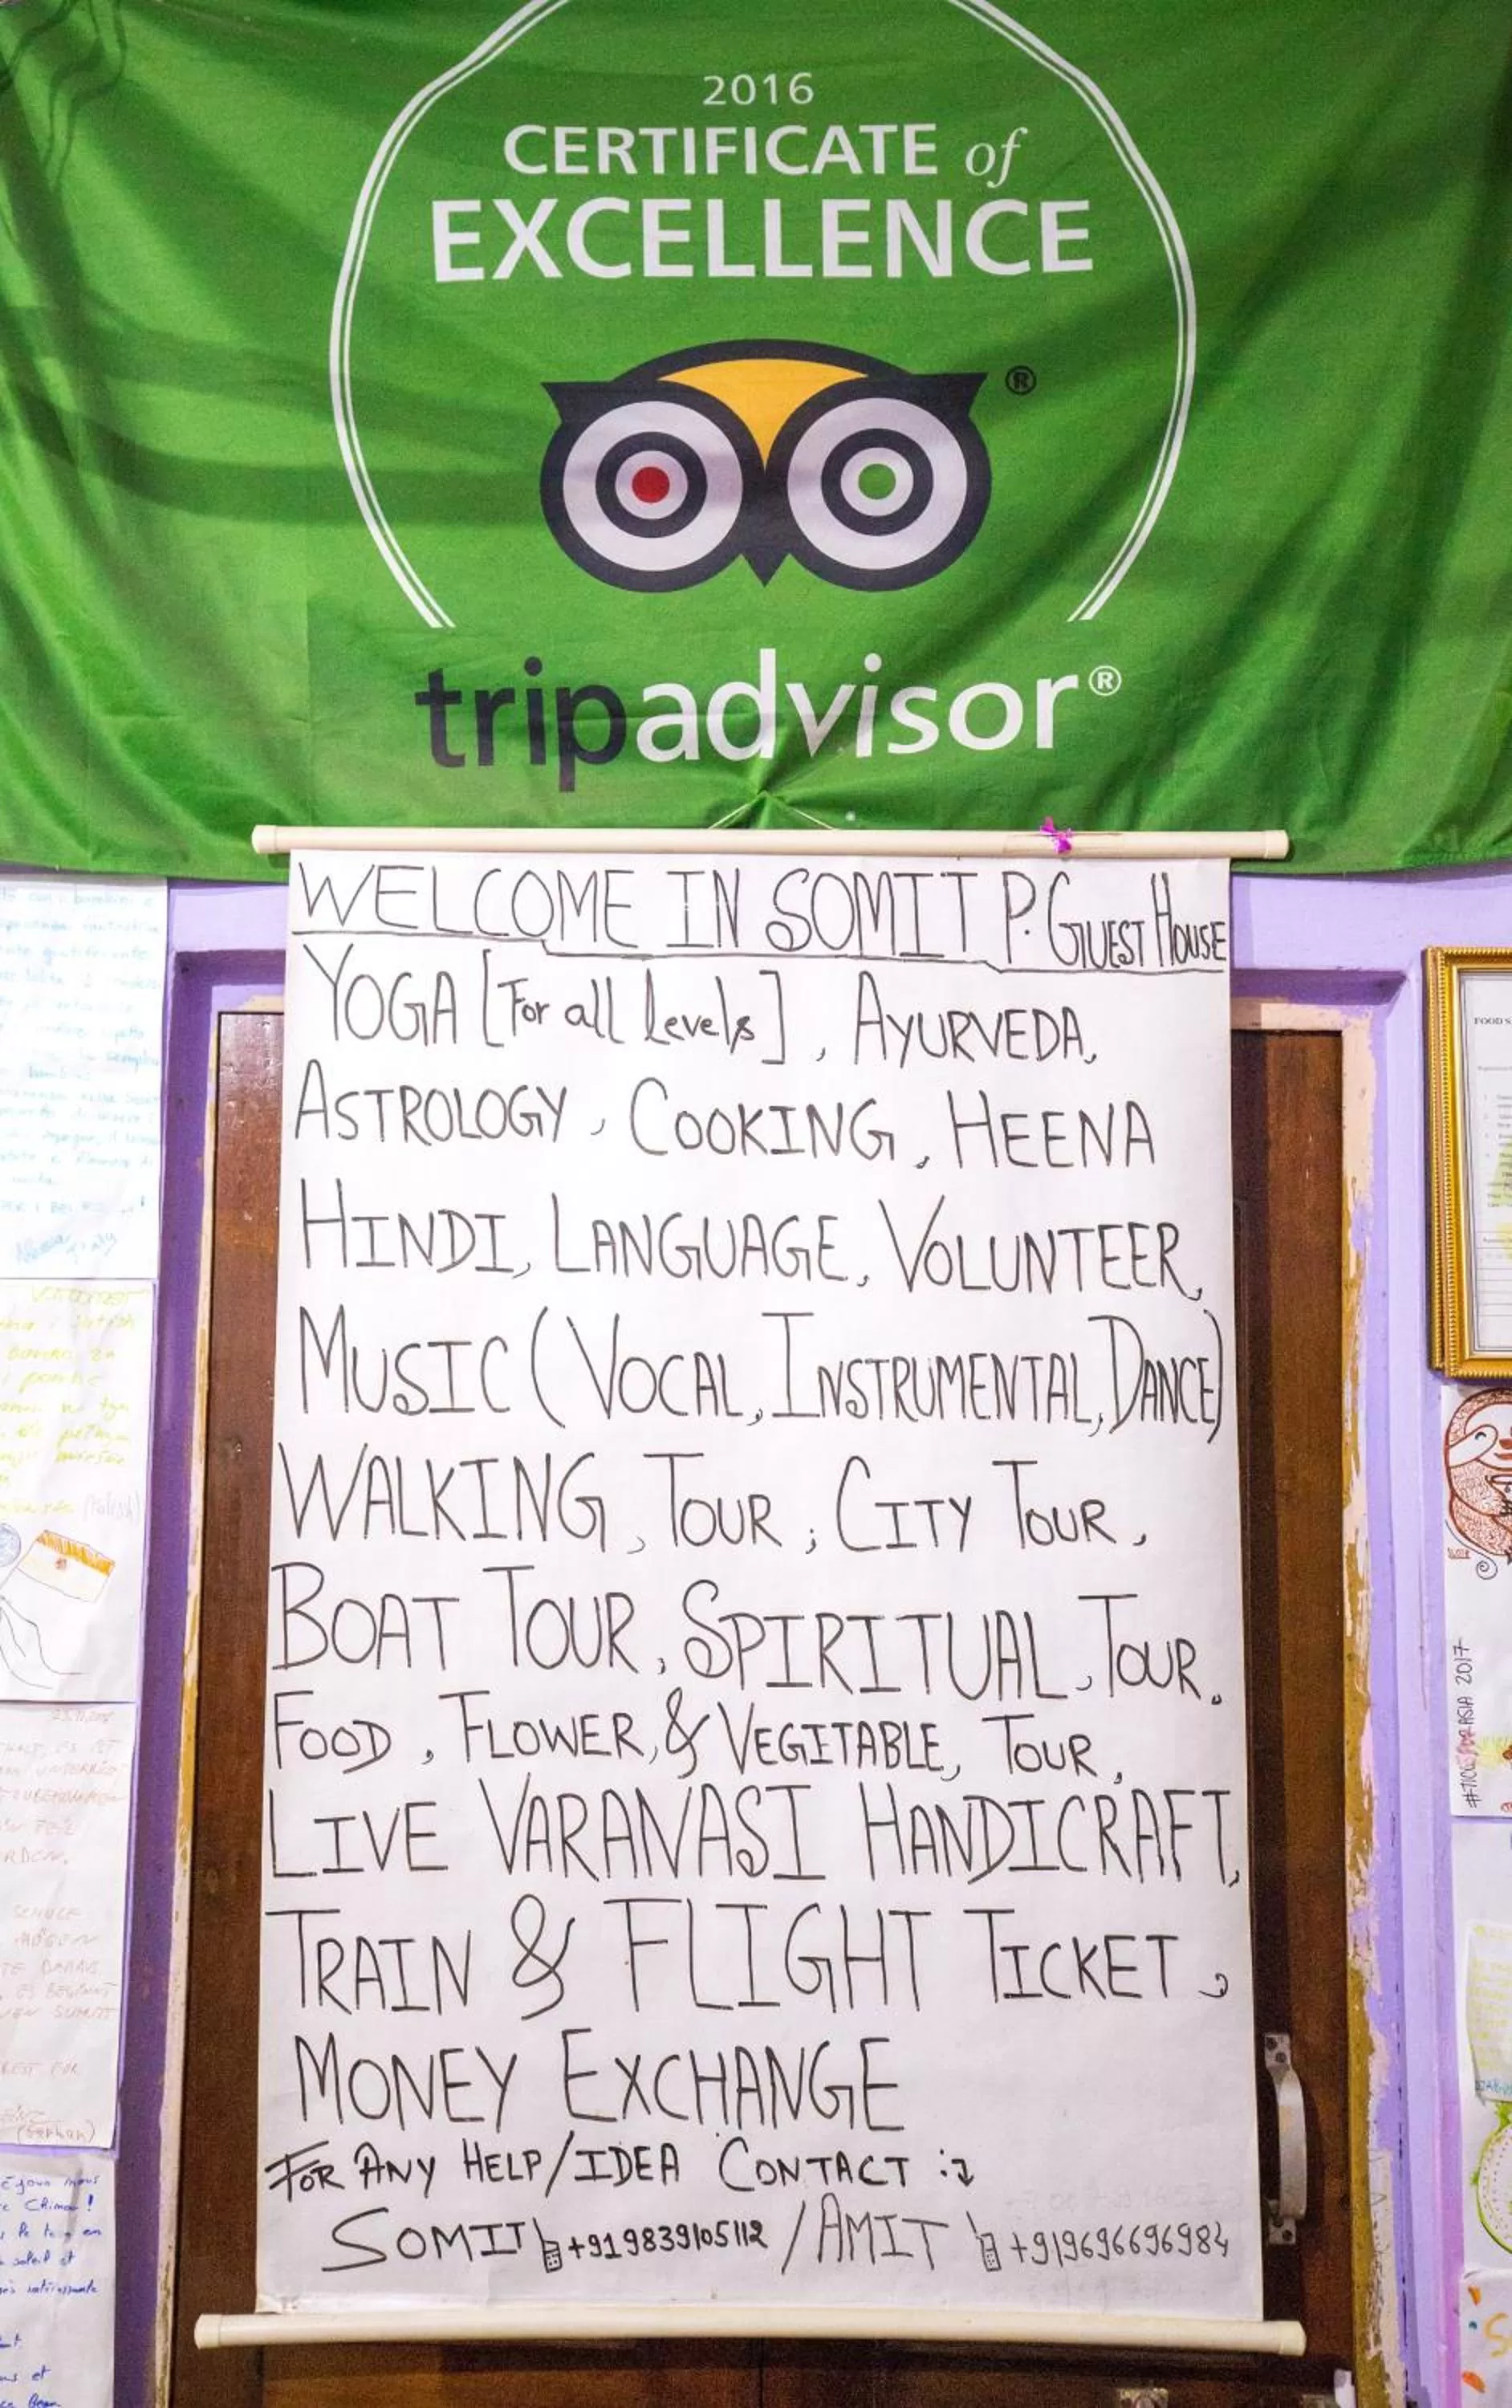 2016
CERTIFICATE of
EXCELLENCE
®
tripadvisor®
WELCOME IN SOMIT P. GUEST HOUSE
YOGA [For all levels], AYURVEDA,
ASTROLOGY, COOKING, HEENA
HINDI, LANGUAGE, VOLUNTEER,
MUSIC (VOCAL, INSTRUMENTAL, DANCE)
WALKING, TOUR, CITY TOUR,
BOAT TOUR, SPIRITUAL, TOUR.
FOOD, FLOWER, & VEGITABLE, TOUR,
LIVE VARANASI HANDICRAFT,
TRAIN & FLIGHT TICKET,
MONEY EXCHANGE
FOR ANY HELP/IDEA CONTACT :
SOMIT +919839105112 / AMIT +919696696984